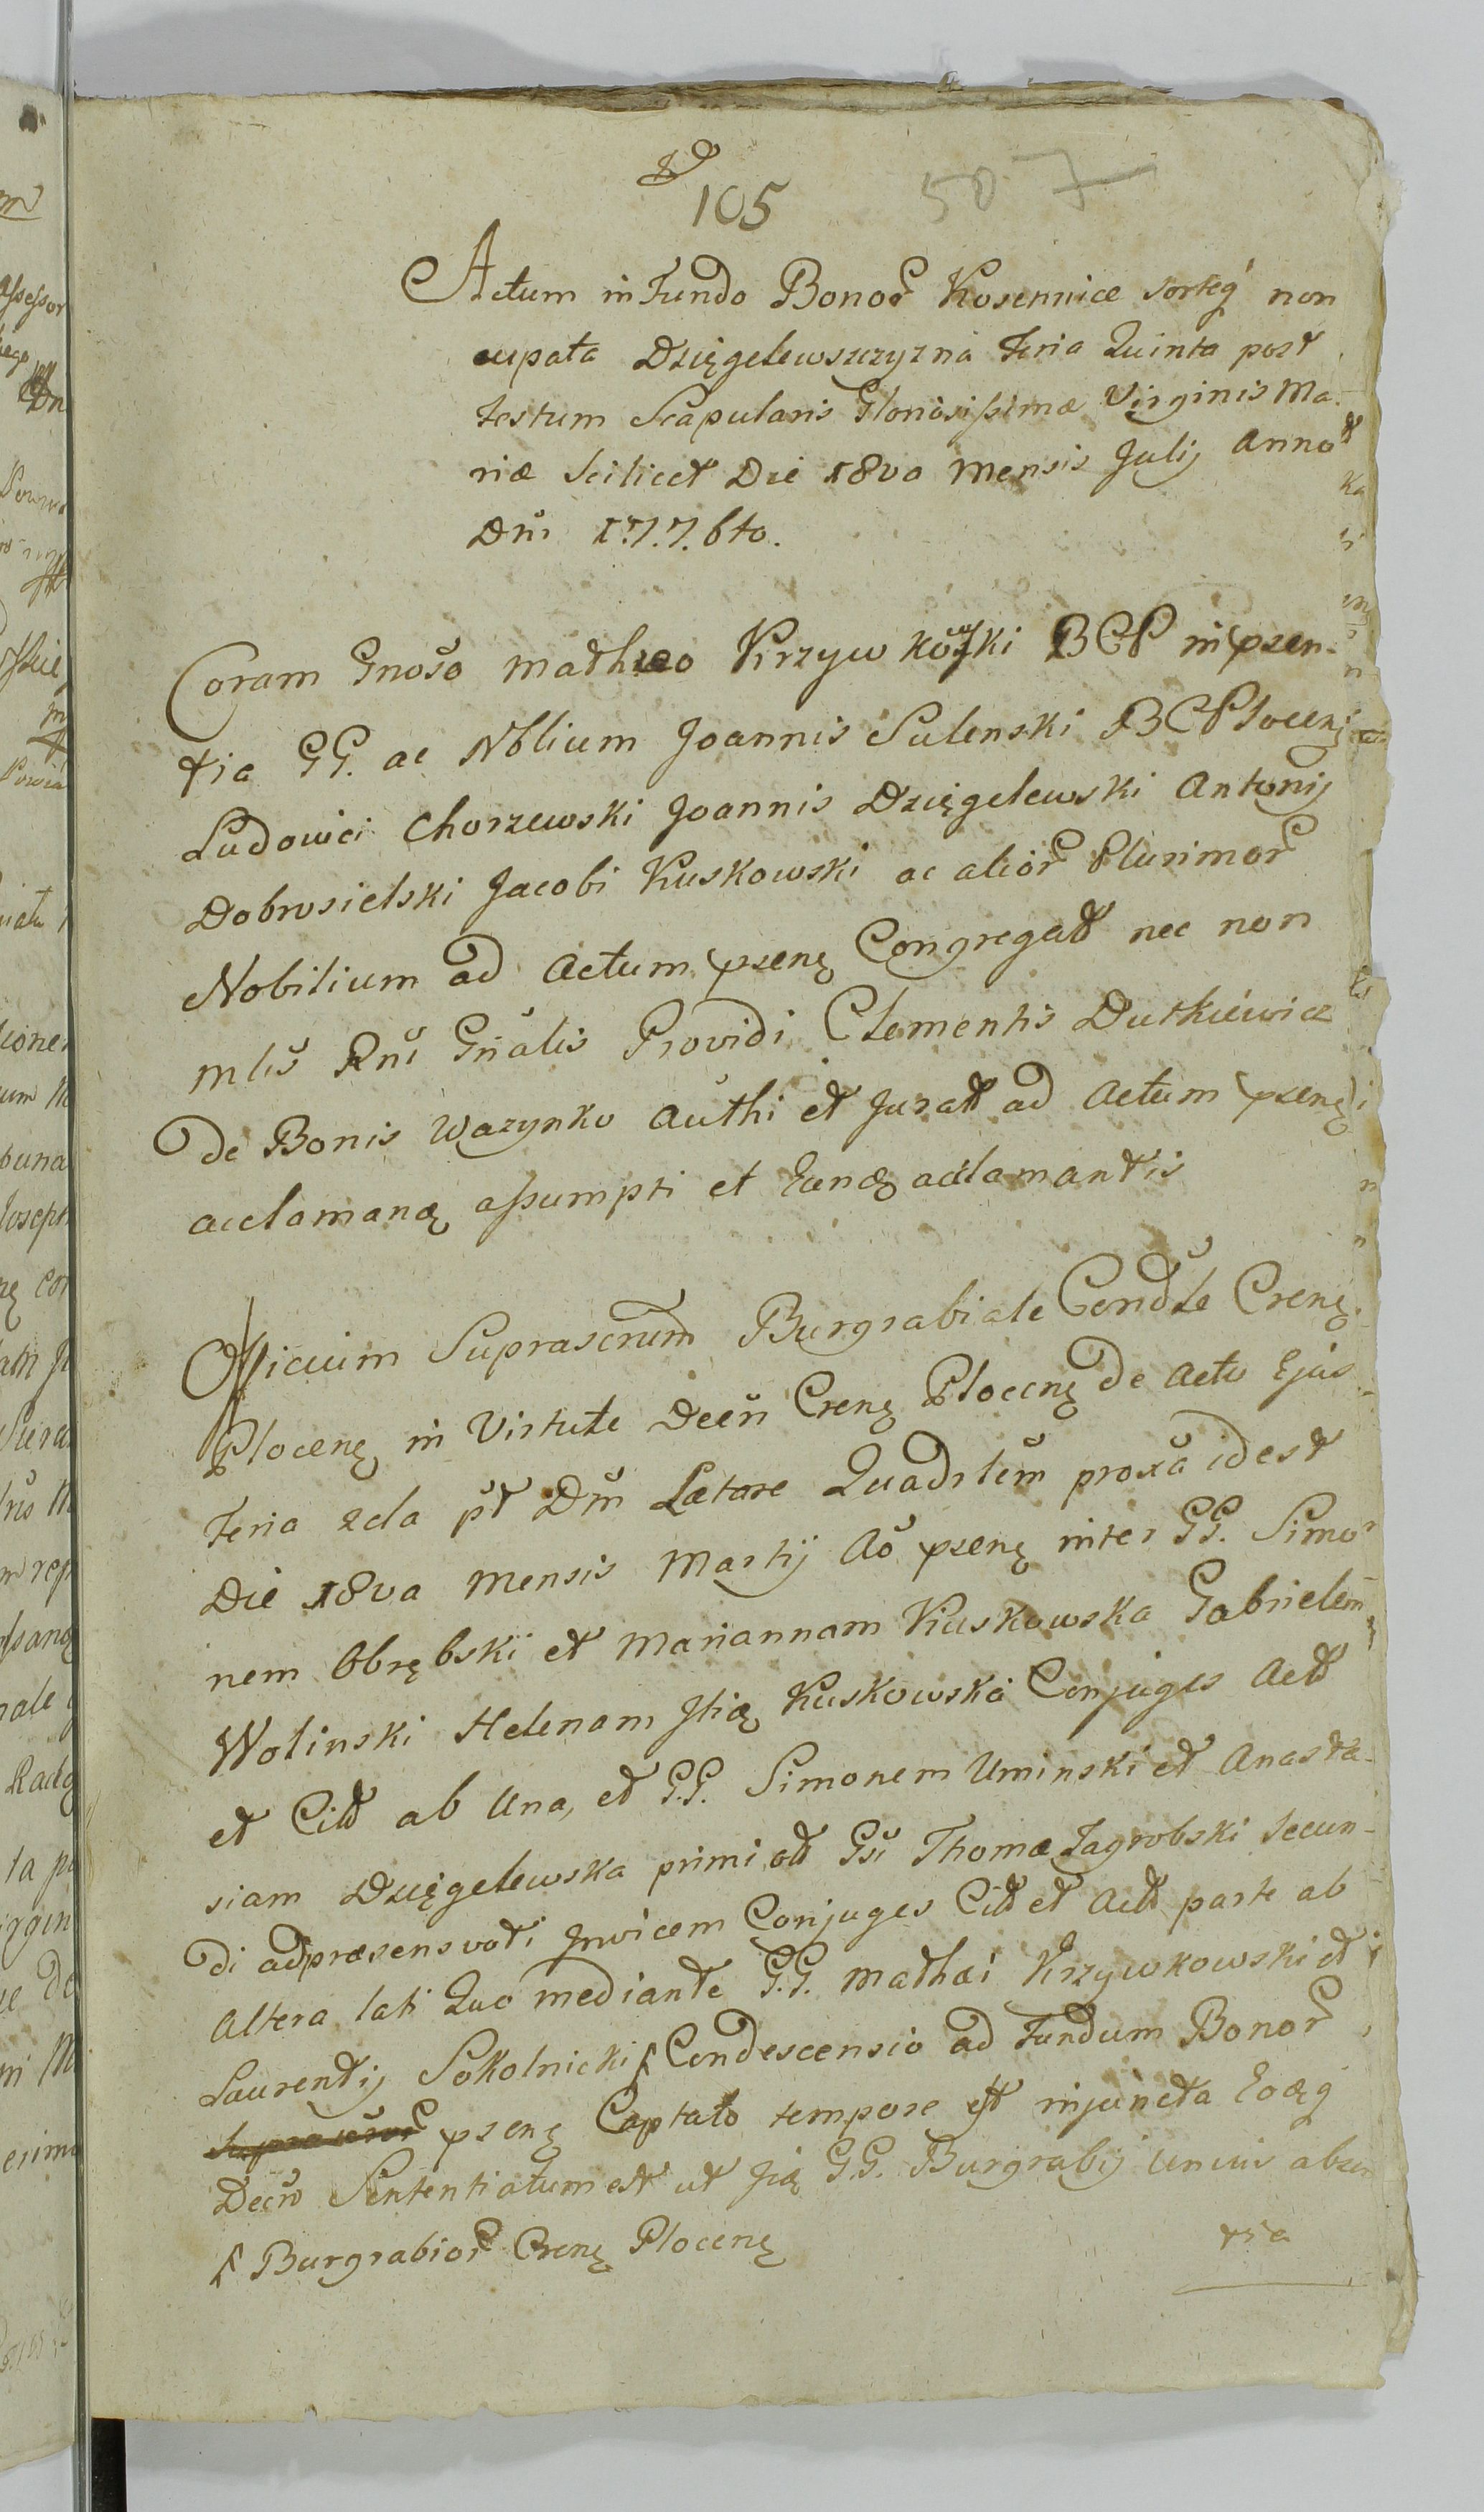 105 507
Actum in Fundo Bonor Kosemice Sorteq non
cupata Dzięgelewszczyzna Feria Quinta post
Festum Scapularis Gloriosissimæ Virginis Ma-
riæ Scilicet Die 18va Mensis Julij Anno
Dni 1.7.7.6to.
Coram Gnoso Mathæo Krzywkowski BCP in psen-
tia GG. ac Nblium Joannis Sulenski BCPlocen
Ludovici Chorzewski Joannis Dzięgelewski Antonij
Dobrosielski Jacobi Kuskowski ac alior Plurimor
Nobilium ad Actum psenę Congregat nec non
Mlis Rni Gnalis Providi Clementis Dutkiewicz
De Bonis Wazynko Authi et Jurat ad Actum psenę
acclamanę assumpti et Eandę acclamantis
Officium Suprascrum Burgrabiale Condle Crenę
Plocenę in Virtute Decŭ Crenę Plocenę De Actu Ejus
Feria 2da pt Dm Lætare Quadrlem proxa idest
Die 18va Mensis Martij Ao psenę inter GG. Simo
nem Obrębski et Mariannam Kuskowska Gabrielem
Wolinski Helenam Itię Kuskowska Conjuges Act
et Cit ab Una, et G.G. Simonem Uminski et Anasta-
siam Dzięgelewska primi olt Gsi Thomæ Zagrobski Secun-
di adpræsens voti Invicem Conjuges Cit et Act parte ab
Altera lati Quo mediante G.G. Mathæi Krzywkowski et
Laurentij Sokolnicki Condescensio ad Fundum Bonor
psenę Captato tempore est injuncta Eodęq
Decŭ Sententiatum est ut Iię G.G. Burgrabij Unius absen
Burgrabior Crenę Plocenę
tia